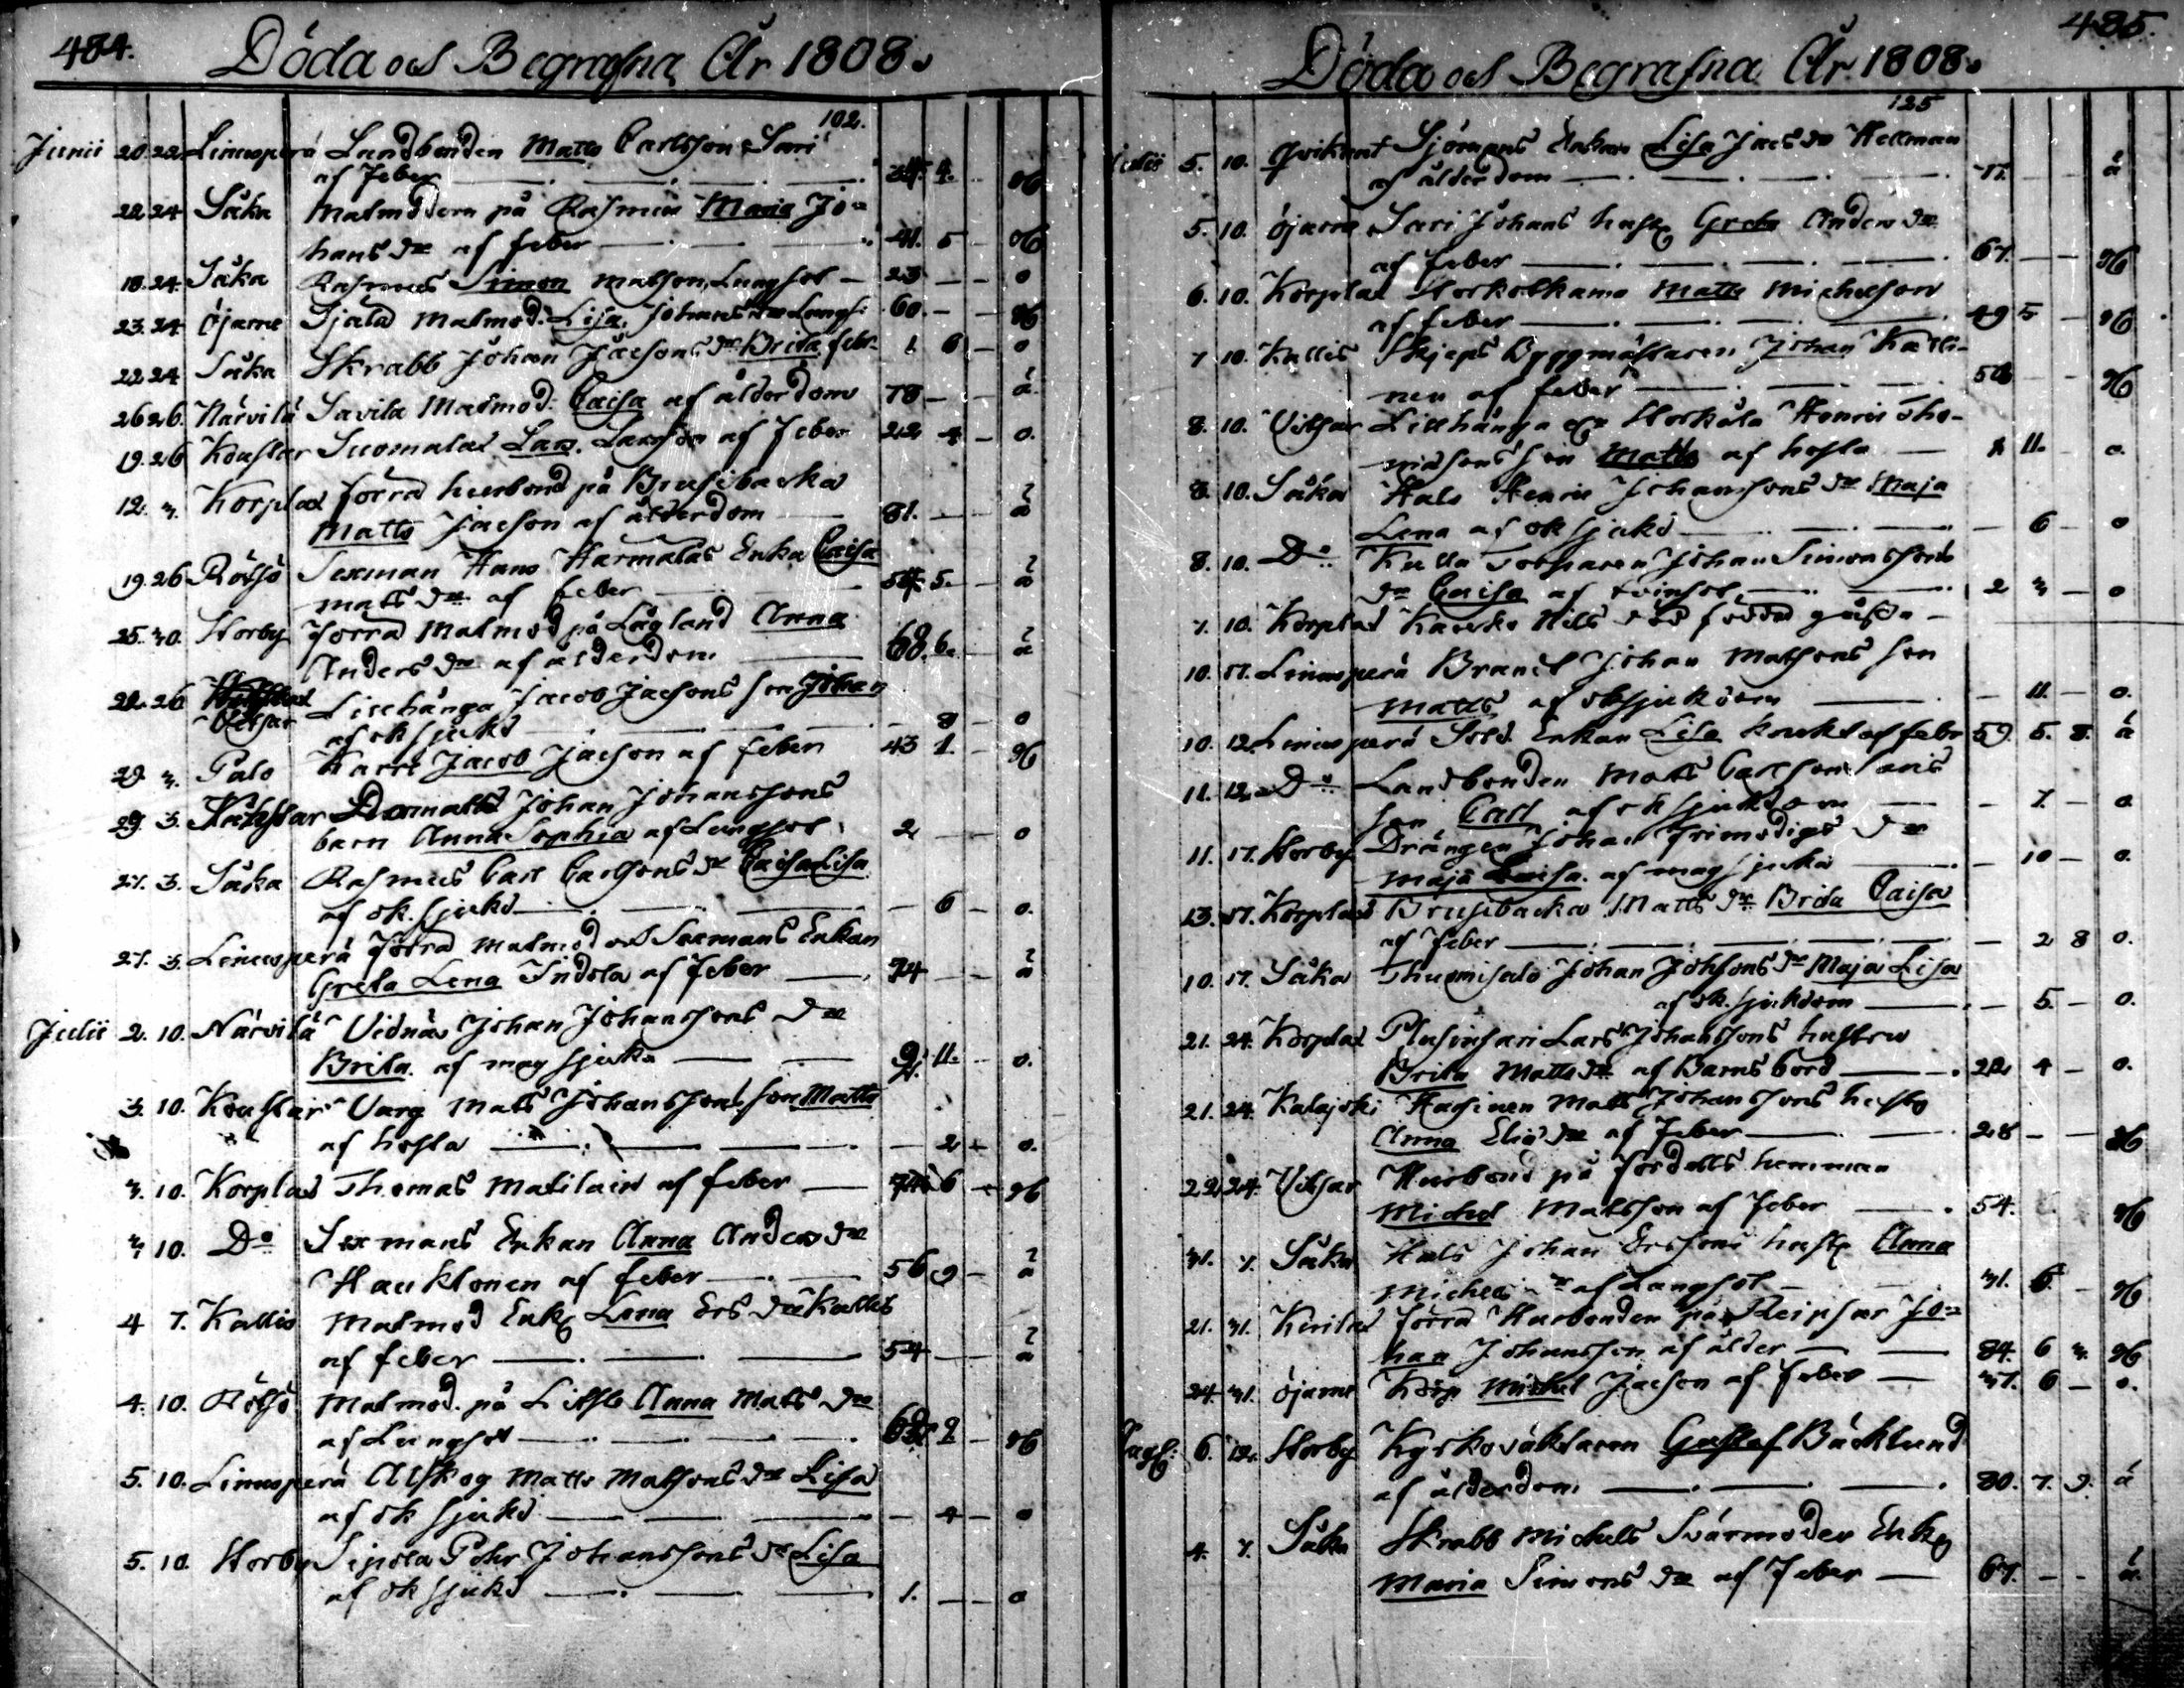 484.
Döda och Begrafna År 1808.
102.
Junii 20. 22. Linusperä Landbonden Matts Carlsson Sari
af feber 34. 4. g
22 24 Såka Malmodern på Rasmus Maria Jo-
hans dr af feber 41. 5 g
18. 24. Såka Rasmus Simon Matsson, Lungsot 23 o
23 24 Öjarne Själa Malmod. Lisa Johans dr Lungs. 60. g
22 24 Såka Skrabb Johan Jacsons dr Brita feb. 1. 6 o
26 26. Närvilä Savila Malmod. Caisa af ålderdom 78 ä
19. 26 Koustar Suomalas Lars Larsson af feber 22 4 o.
12. 3. Korplax förra husbond på Brusibacka
Matts Jacson af ålderdom 81. ä
19. 26 Rödsö Sexman Hans Harmalas Enka Caisa
Matts dr af feber 54. 5. ä
25. 30. Storby förra Malmod på Lågland Anna
Anders dr af ålderdom 68. 6. ä
22. 26 Vitsar Lillhånga Jacob Jacsons son Johan
af ok sjukd 8 o
29 3. Palo Harri Jacob Jacson af feber 43 1. g
29. 3. Johan Johanssons
barn Anna Sophia af Lungsot 2 o
27. 3. Såka Rasmus Carl Carlsons dr Caisa Lisa
af ok. sjukd 6 o.
27. 3. Linusperä förra Malmod och Sexmans Enkan
Greta Lena Indola af feber 74 ä
Julii 2. 10. Närvilä Vidnäs Johan Johanssons dr
Brita af mag sjuka 2. 11. o.
3. 10. Koustar Varg Mats Johanssons son Matts
af hosta 2 o.
3. 10. Korplax Thomas Matilain af feber 6 g
3 10. Do Sexmans Enkan Anna Anders dr
Hauktonen af feber 56 9 ä
4 7. Kallis Malmod Enk. Lena Ers dr Kallis
af feber 54 ä
4. 10. Rödsö Malmod. på Anna Mats dr
af Lungsot 9 g
5. 10. Linusperä Alskog Matts Matsons dr Lisa
af ok sjukd 4 o
5. 10 Storby Sipola Pehr Johanssons dr Lisa
af ok sjukd 1. o
485.
Döda och Begrafna År 1808.
125
Julii 5. 10. Qvikund Sjömans Enkan Lisa Jacs dr Hellman
af ålderdom 77. ä
5. 10. Öjarne Sari Johans hust. Greta Anders dr
af feber 67. g
6. 10. Korplax Storkolkama Matts Michelson
af feber 49 5 g
7 10. Kallis Skjeps Byggmästaren Johan Kalli-
nen af feber g
8. 10. Vitsar Lillhånga Henric Tho-
massons son Matts af hosta 11. o.
8. 10. Såka Hals Henric Johanssons dr Maja
Lena af ok sjukd 6 o
8. 10. Do Kulla Torparen Johan Simonssons
dr Caisa af 2 3 o
7. 10. Korplax Karcko Nils död födda
10. 17. Linusperä Brandt Johan Matsons son
Matts af ok sjukdom 11. o.
10. 12. Linusperä Sold. Enkan Lisa af feber 59. 5. 8. ä
11. 12. Do Landbonden Matts Carlsson Saris
son Carl af ok sjukdom 7. o.
11. 17. Storby Drängen Johan Frimodigs dr
Maja Caisa af mag sjuka 10 o.
13. 17. Korplax Brusibacka Matts dr Brita Caisa
af feber 2 8 o.
10. 17. Såka Thuomisalo Johan Johsons dr Maja Lisa
af ok. sjukdom 5. o.
21. 24. Korplax Plusinsari Lars Johanssons hustru
Brita Matts dr af Barns börd 22 4 o.
21. 24. Kalajoki Hasinen Matts Johanssons hust.
Anna Elis dr af feber 28 g
22 24. Vitsar Husbond på fordells hemman
Michel Matsson af feber 54. g
31. 7. Såka Hals Johan Erssons hust. Anna
Michels dr af Lungsot 31. 6. g
21. 31. Kvikas förra Husbonden på Reipsar Jo-
han Johansson af ålder 84. 6 3. g
24. 31. Öjarne Korp Michel Jacson af feber 37. 6 o.
Aug: 6. 12. Storby Kyrkoväktaren Gustaf Bäcklund
af ålderdom 80. 7. 9. ä
4. 7. Såka Skrabb Michels Svärmoder Enk.
Maria Simons dr af feber 67. ä